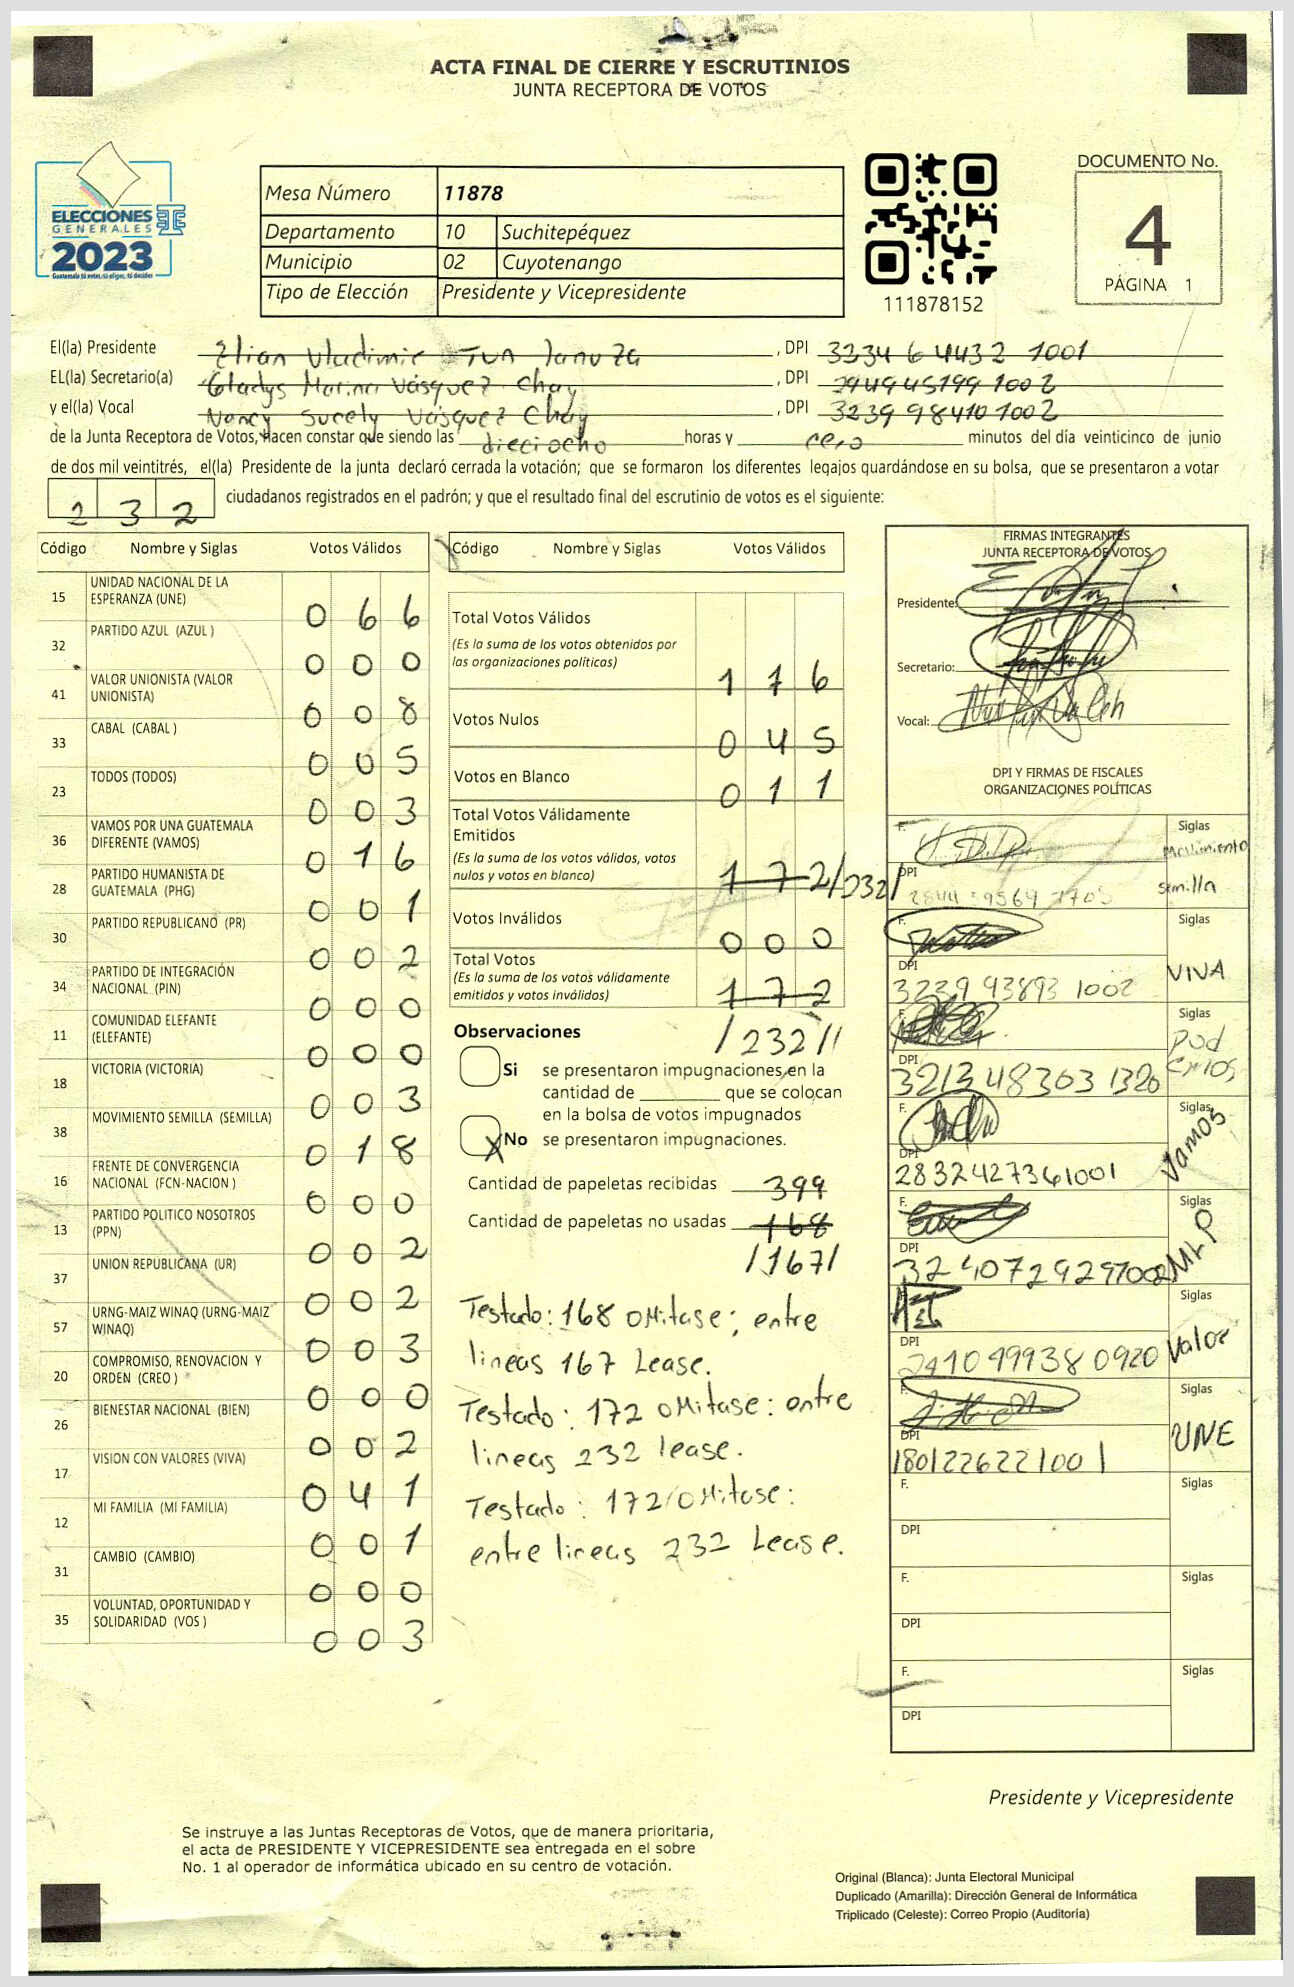 ACTA FINAL DE CIERRE Y ESCRUTINIOS
JUNTA RECEPTORA DE VOTOS
ELECCIONES
GENERALES
2023
Guatemala tú votas, tú eliges, tú decides
Mesa Número 11878
Departamento 10 Suchitepéquez
Municipio 02 Cuyotenango
Tipo de Elección Presidente y Vicepresidente
111878152
DOCUMENTO No.
4
PÁGINA 1
El(la) Presidente Elian Vladimir Tun , DPI 3234 64432 1001
EL(la) Secretario(a) Gladys Marina Vásquez Chay , DPI 294945199 1002
y el(la) Vocal Nancy Sucely Vásquez Chay , DPI 3239 98410 1002
de la Junta Receptora de Votos, hacen constar que siendo las dieciocho horas y cero minutos del día veinticinco de junio
de dos mil veintitrés, el(la) Presidente de la junta declaró cerrada la votación; que se formaron los diferentes legajos quardándose en su bolsa, que se presentaron a votar
232 ciudadanos registrados en el padrón; y que el resultado final del escrutinio de votos es el siguiente:
Código Nombre y Siglas Votos Válidos
15 UNIDAD NACIONAL DE LA ESPERANZA (UNE) 066
32 PARTIDO AZUL (AZUL ) 000
41 VALOR UNIONISTA (VALOR UNIONISTA) 008
33 CABAL (CABAL ) 005
23 TODOS (TODOS) 003
36 VAMOS POR UNA GUATEMALA DIFERENTE (VAMOS) 016
28 PARTIDO HUMANISTA DE GUATEMALA (PHG) 001
30 PARTIDO REPUBLICANO (PR) 002
34 PARTIDO DE INTEGRACIÓN NACIONAL (PIN) 000
11 COMUNIDAD ELEFANTE (ELEFANTE) 000
18 VICTORIA (VICTORIA) 003
38 MOVIMIENTO SEMILLA (SEMILLA) 018
16 FRENTE DE CONVERGENCIA NACIONAL (FCN-NACION ) 000
13 PARTIDO POLITICO NOSOTROS (PPN) 002
37 UNION REPUBLICANA (UR) 002
57 URNG-MAIZ WINAQ (URNG-MAIZ WINAQ) 003
20 COMPROMISO, RENOVACION Y ORDEN (CREO ) 000
26 BIENESTAR NACIONAL (BIEN) 002
17 VISION CON VALORES (VIVA) 041
12 MI FAMILIA (MI FAMILIA) 001
31 CAMBIO (CAMBIO) 000
35 VOLUNTAD, OPORTUNIDAD Y SOLIDARIDAD (VOS ) 003
Código Nombre y Siglas Votos Válidos
Total Votos Válidos 176
(Es la suma de los votos obtenidos por
las organizaciones políticas)
Votos Nulos 045
Votos en Blanco 011
Total Votos Válidamente
Emitidos
(Es la suma de los votos válidos, votos
nulos y votos en blanco) 172/232/
Votos Inválidos 000
Total Votos
(Es la suma de los votos válidamente
emitidos y votos inválidos) 172
/232//
Observaciones
Si se presentaron impugnaciones en la
cantidad de ________ que se colocan
en la bolsa de votos impugnados
X No se presentaron impugnaciones.
Cantidad de papeletas recibidas 399
Cantidad de papeletas no usadas 168
/167/
Testado: 168 OMitase; entre
lineas 167 Lease.
Testado: 172 OMitase: entre
lineas 232 lease.
Testado: 172 OMitase:
entre lineas 232 Lease.
FIRMAS INTEGRANTES
JUNTA RECEPTORA DE VOTOS
Presidente:
Secretario:
Vocal:
DPI Y FIRMAS DE FISCALES
ORGANIZACIONES POLÍTICAS
F. Siglas
Movimiento
Semilla
DPI 2844 9564 1703
F. Siglas
VIVA
DPI 3239 93893 1002
F. Siglas
DPI 3213 48303 1320
F. Siglas
Vamos
DPI 2832427361001
F. Siglas
MLP
DPI 3240729291002
F. Siglas
Valor
DPI 2410 99938 0920
F. Siglas
UNE
DPI 1801226221001
F. Siglas
DPI
F. Siglas
DPI
F. Siglas
DPI
Presidente y Vicepresidente
Se instruye a las Juntas Receptoras de Votos, que de manera prioritaria,
el acta de PRESIDENTE Y VICEPRESIDENTE sea entregada en el sobre
No. 1 al operador de informática ubicado en su centro de votación.
Original (Blanca): Junta Electoral Municipal
Duplicado (Amarilla): Dirección General de Informática
Triplicado (Celeste): Correo Propio (Auditoría)